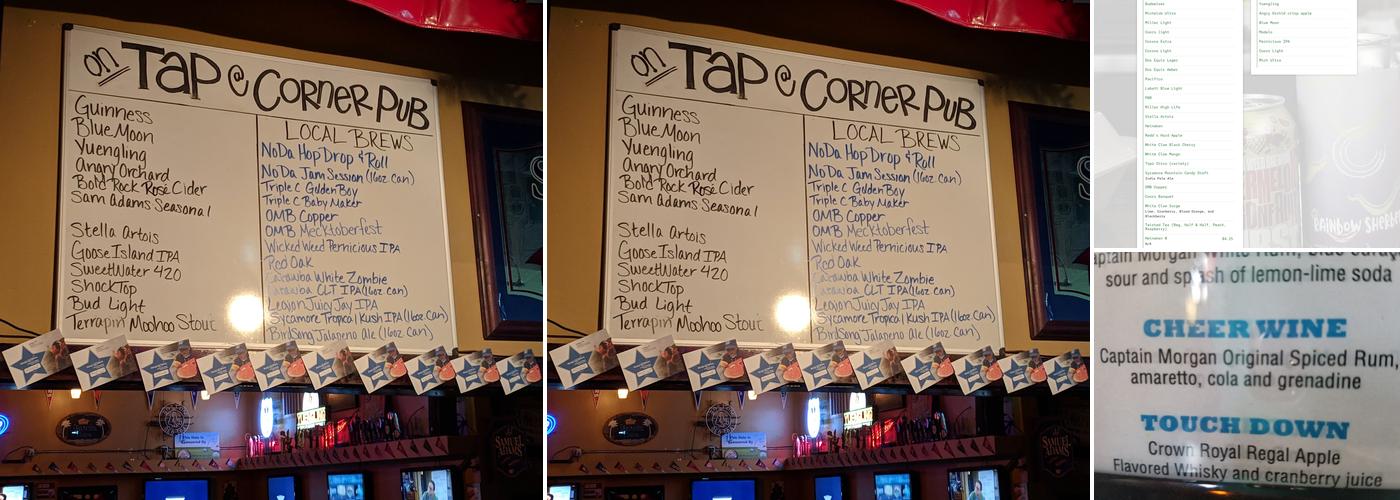 on TAP @ CORNER PUB
Guinness
Blue Moon
Yuengling
Angry Orchard
Bold Rock Rosé Cider
Sam Adams Seasonal
Stella Artois
Goose Island IPA
SweetWater 420
ShockTop
Bud Light
Terrapin Moohoo Stout
LOCAL BREWS
NoDa Hop Drop & Roll
NoDa Jam Session (16oz. Can)
Triple C Golden Boy
Triple C Baby Maker
OMB Copper
OMB Mecktoberfest
Wicked Weed Pernicious IPA
Red Oak
Catawba White Zombie
Catawba CLT IPA (16oz. Can)
Legion Juicy Jay IPA
Sycamore Tropical Kush IPA (16oz. Can)
BirdSong Jalapeno Ale (16oz Can)
SAMUEL ADAMS
on TAP @ CORNER PUB
Guinness
Blue Moon
Yuengling
Angry Orchard
Bold Rock Rosé Cider
Sam Adams Seasonal
Stella Artois
Goose Island IPA
SweetWater 420
ShockTop
Bud Light
Terrapin Moohoo Stout
LOCAL BREWS
NoDa Hop Drop & Roll
NoDa Jam Session (16oz. Can)
Triple C Golden Boy
Triple C Baby Maker
OMB Copper
OMB Mecktoberfest
Wicked Weed Pernicious IPA
Red Oak
Catawba White Zombie
Catawba CLT IPA (16oz. Can)
Legion Juicy Jay IPA
Sycamore Tropical Kush IPA (16oz. Can)
BirdSong Jalapeno Ale (16oz Can)
Budweiser
Michelob Ultra
Miller Light
Coors Light
Corona Extra
Corona Light
Dos Equis Lager
Dos Equis Amber
Pacifico
Labatt Blue Light
PBR
Miller High Life
Stella Artois
Heineken
Redd's Hard Apple
White Claw Black Cherry
White Claw Mango
Topo Chico (variety)
Sycamore Mountain Candy Draft
India Pale Ale
OMB Copper
Coors Banquet
White Claw Surge
Lime, Cranberry, Blood Orange, and
Blackberry
Twisted Tea (Reg, Half & Half, Peach,
Raspberry)
Heineken 0 $4.25
N/A
Yuengling
Angry Orchid crisp apple
Blue Moon
Modelo
Pernicious IPA
Coors Light
Mich Ultra
RAINBOW SHERB
Captain Morgan White Rum,
sour and splash of lemon-lime soda
CHEER WINE
Captain Morgan Original Spiced Rum,
amaretto, cola and grenadine
TOUCH DOWN
Crown Royal Regal Apple
Flavored Whisky and cranberry juice